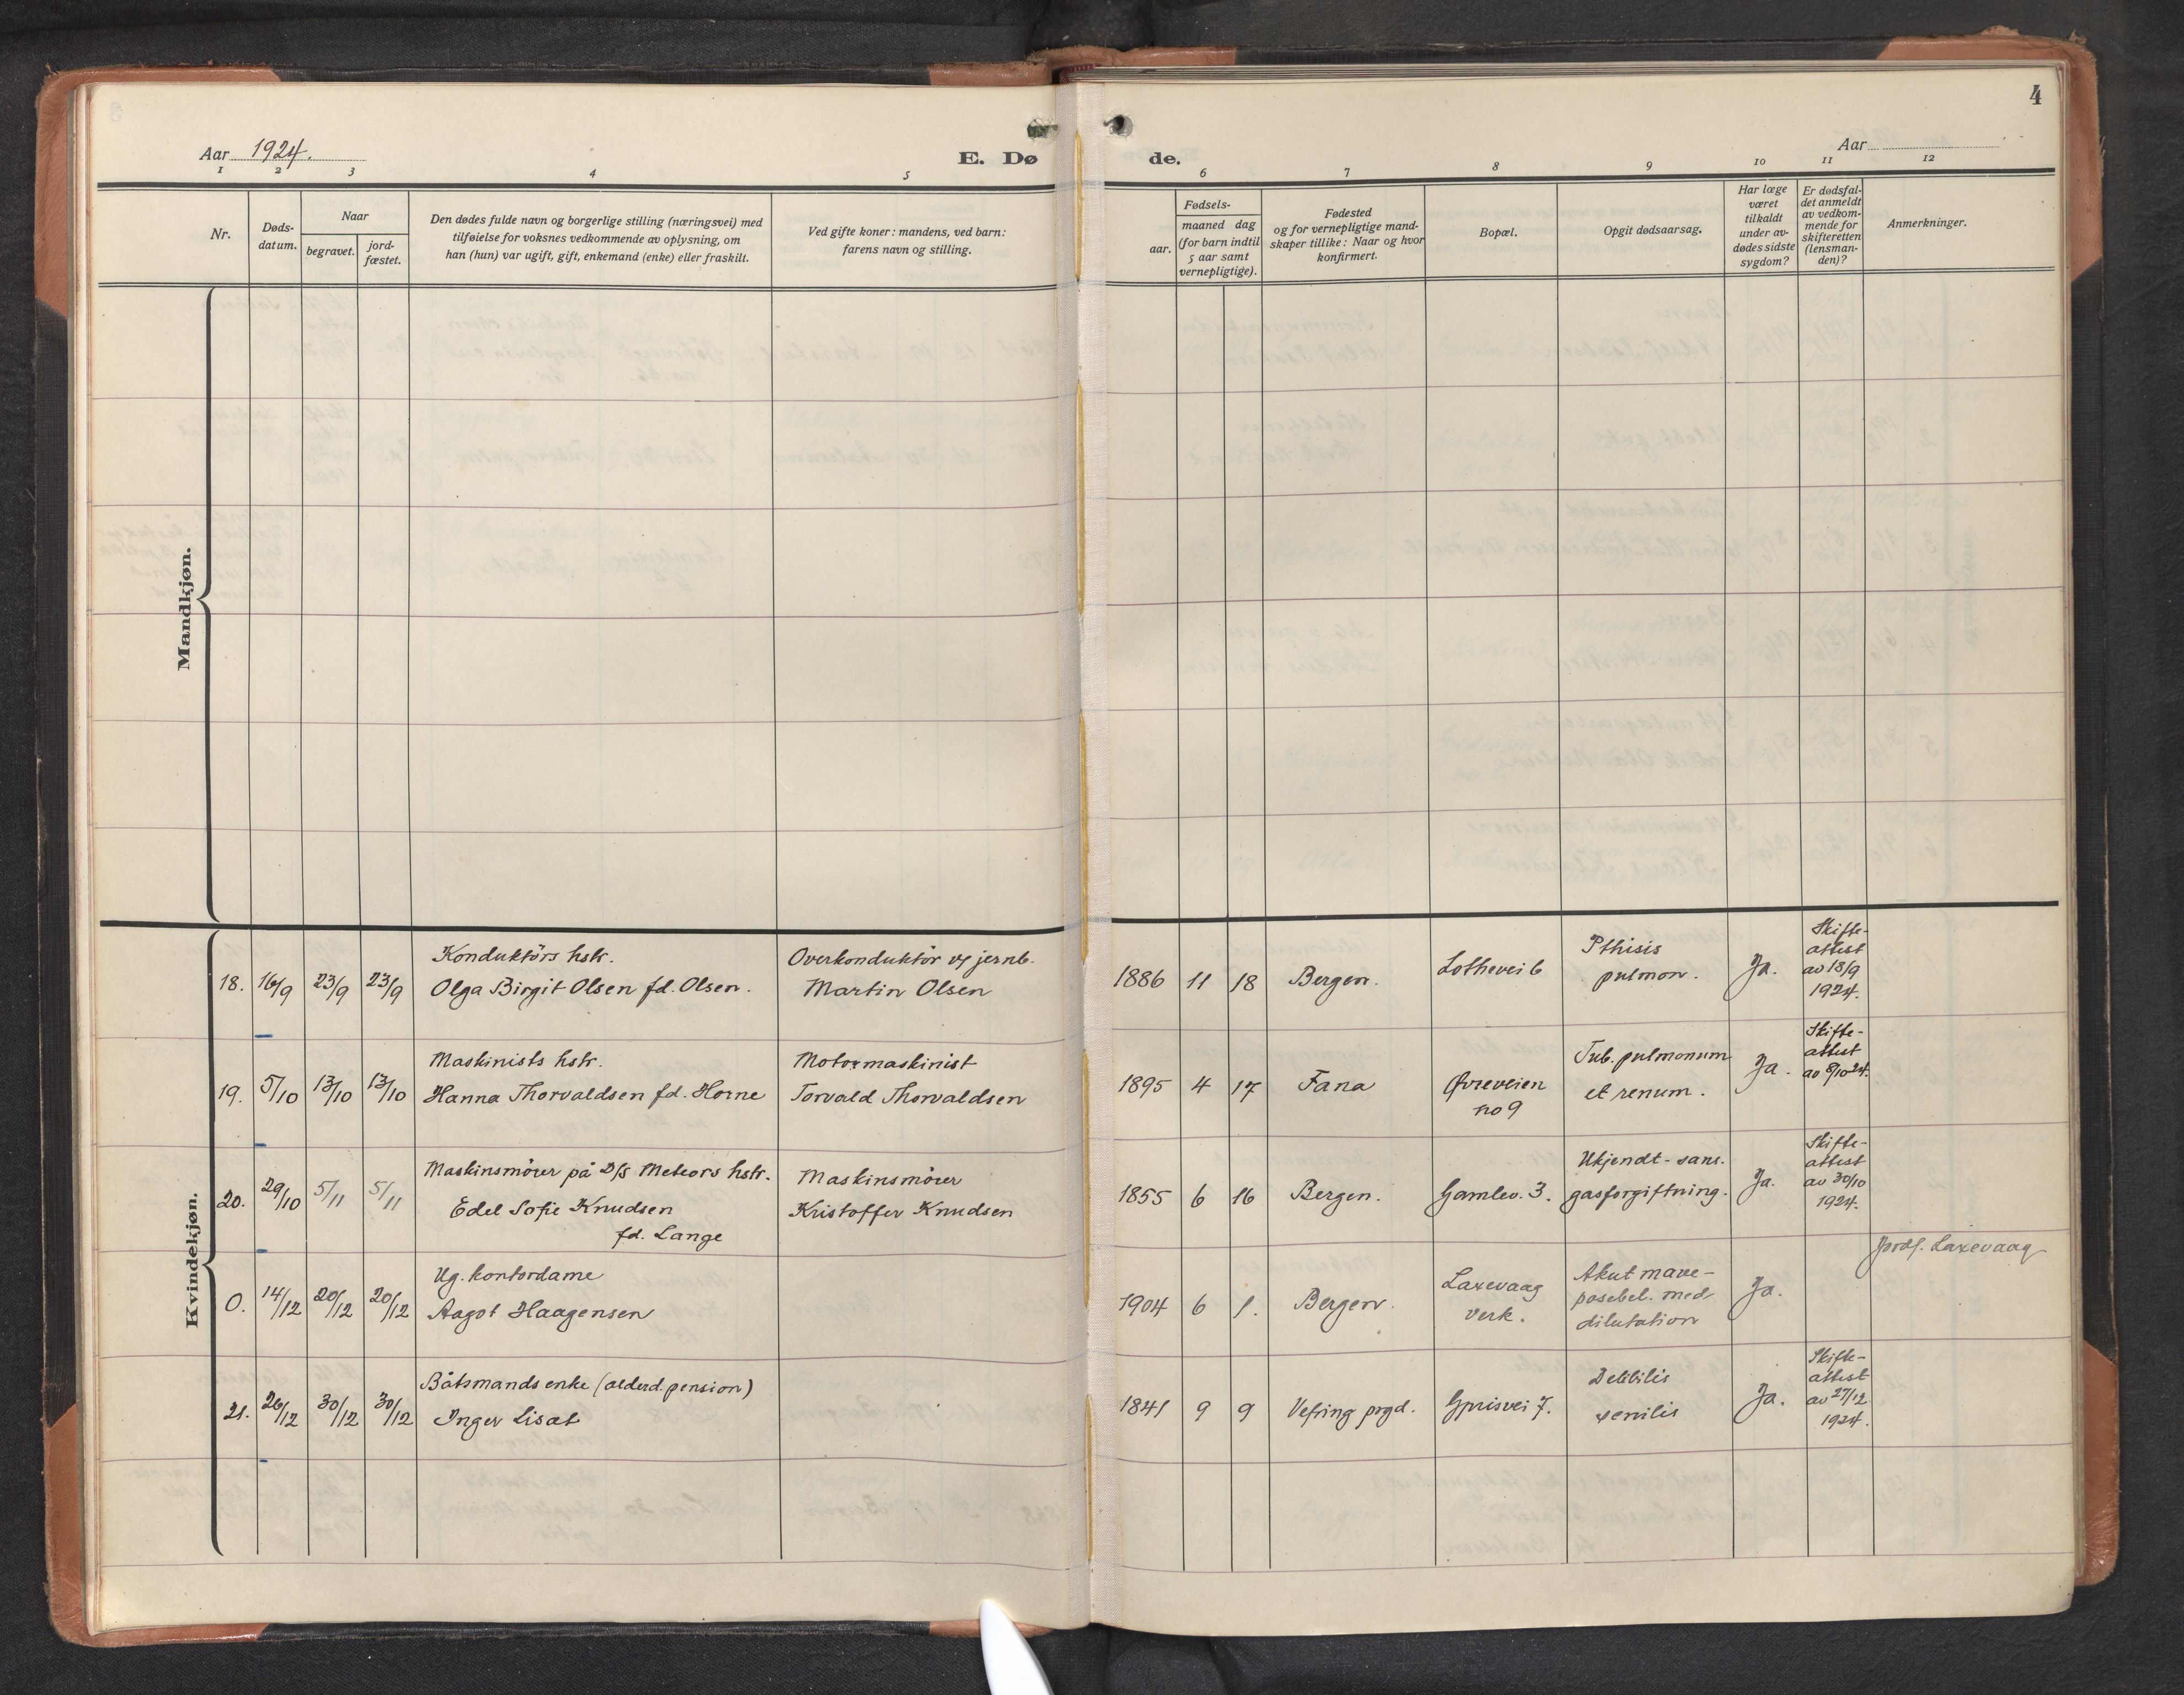 4
Aar 1924.
E. Dø de.
Aar
1 2 3 4 5 6 7 8 9 10 11 12
Nr.
Døds-
datum.
Naar
begravet.
jord-
fæstet.
Den dødes fulde navn og borgerlige stilling (næringsvei) med
tilføielse for voksnes vedkommende av oplysning, om
han (hun) var ugift, gift, enkemand (enke) eller fraskilt.
Ved gifte koner: mandens, ved barn:
farens navn og stilling.
Fødsels-
aar.
maaned dag
(for barn indtil
5 aar samt
vernepligtige).
Fødested
og for vernepligtige mand-
skaper tillike: Naar og hvor
konfirmert.
Bopæl.
Opgit dødsaarsag.
Har læge
været
tilkaldt
under av-
dødes sidste
sygdom?
Er dødsfal-
det anmeldt
av vedkom-
mende for
skifteretten
(lensman-
den)?
Anmerkninger.
Mandkjøn.
Kvindekjøn.
18. 16/9 23/9 23/9
Konduktörs hstr.
Olga Birgit Olsen fd. Olsen.
Overkonduktör v/ jernb.
Martin Olsen
1886 11 18 Bergen.
Lothevei 6
Pthisis
pulmon.
Ja.
Skifte-
attest
av 18/9
1924.
19. 5/10 13/10 13/10
Maskinists hstr.
Hanna Thorvaldsen fd. Horne
Motormaskinist
Torvald Thorvaldsen
1895 4 17 Fana
Øvreveien
no 9
Tub. pulmonum
et renum.
Ja.
Skifte-
attest
av 8/10 24.
20. 29/10 5/11 5/11
Maskinsmörer på D/S Meteors hstr.
Edel Sofie Knudsen
fd. Lange
Maskinsmörer
Kristoffer Knudsen
1855 6 16 Bergen.
Gamlev. 3.
Ukjendt - sans.
gasforgiftning.
Ja.
Skifte-
attest
av 30/10
1924.
0. 14/12 20/12 20/12
Ug. kontordame
Aagot Haagensen
1904 6 1. Bergen.
Laxevaag
verk.
Akut mave-
posebet. med
dilutation
Ja.
Laxevaag
21. 26/12 30/12 30/12
Båtsmands enke (alderd. pension)
Inger Lisat
1841 9 9 Vefring prgd.
7.
Debilis
senilis
Ja.
Skifte-
attest
av 27/12
1924.